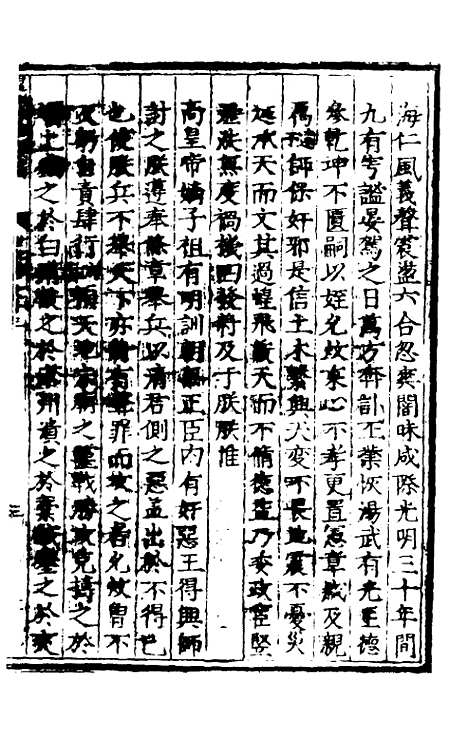 海仁風義聲震盪六合忽爽闇昧咸際光明三十年間
九有寧謐晏駕之日萬方奔訃丕業恢湯武有光至德
參乾坤不匱嗣以姪允炆秉心不孝更置憲章戕及親
師保奸邪是信土木繁興天變不畏地震不憂災
延承天而文其過蝗飛蔽天而不脩德益乃委政宦豎
淫泆無度禍機四發將及于朕朕惟
高皇帝嫡子祖有明訓朝無正臣內有奸惡王得興師
討之朕遵奉條章舉兵以清君側之惡蓋出於不得已
也使朕兵不舉天下亦將有聲罪而攻之者允炆曾不
反躬自責肆行天地宗廟之靈戰勝攻克搏之於
上之於白溝破之於滄州潰之於藁城鏖之於夾